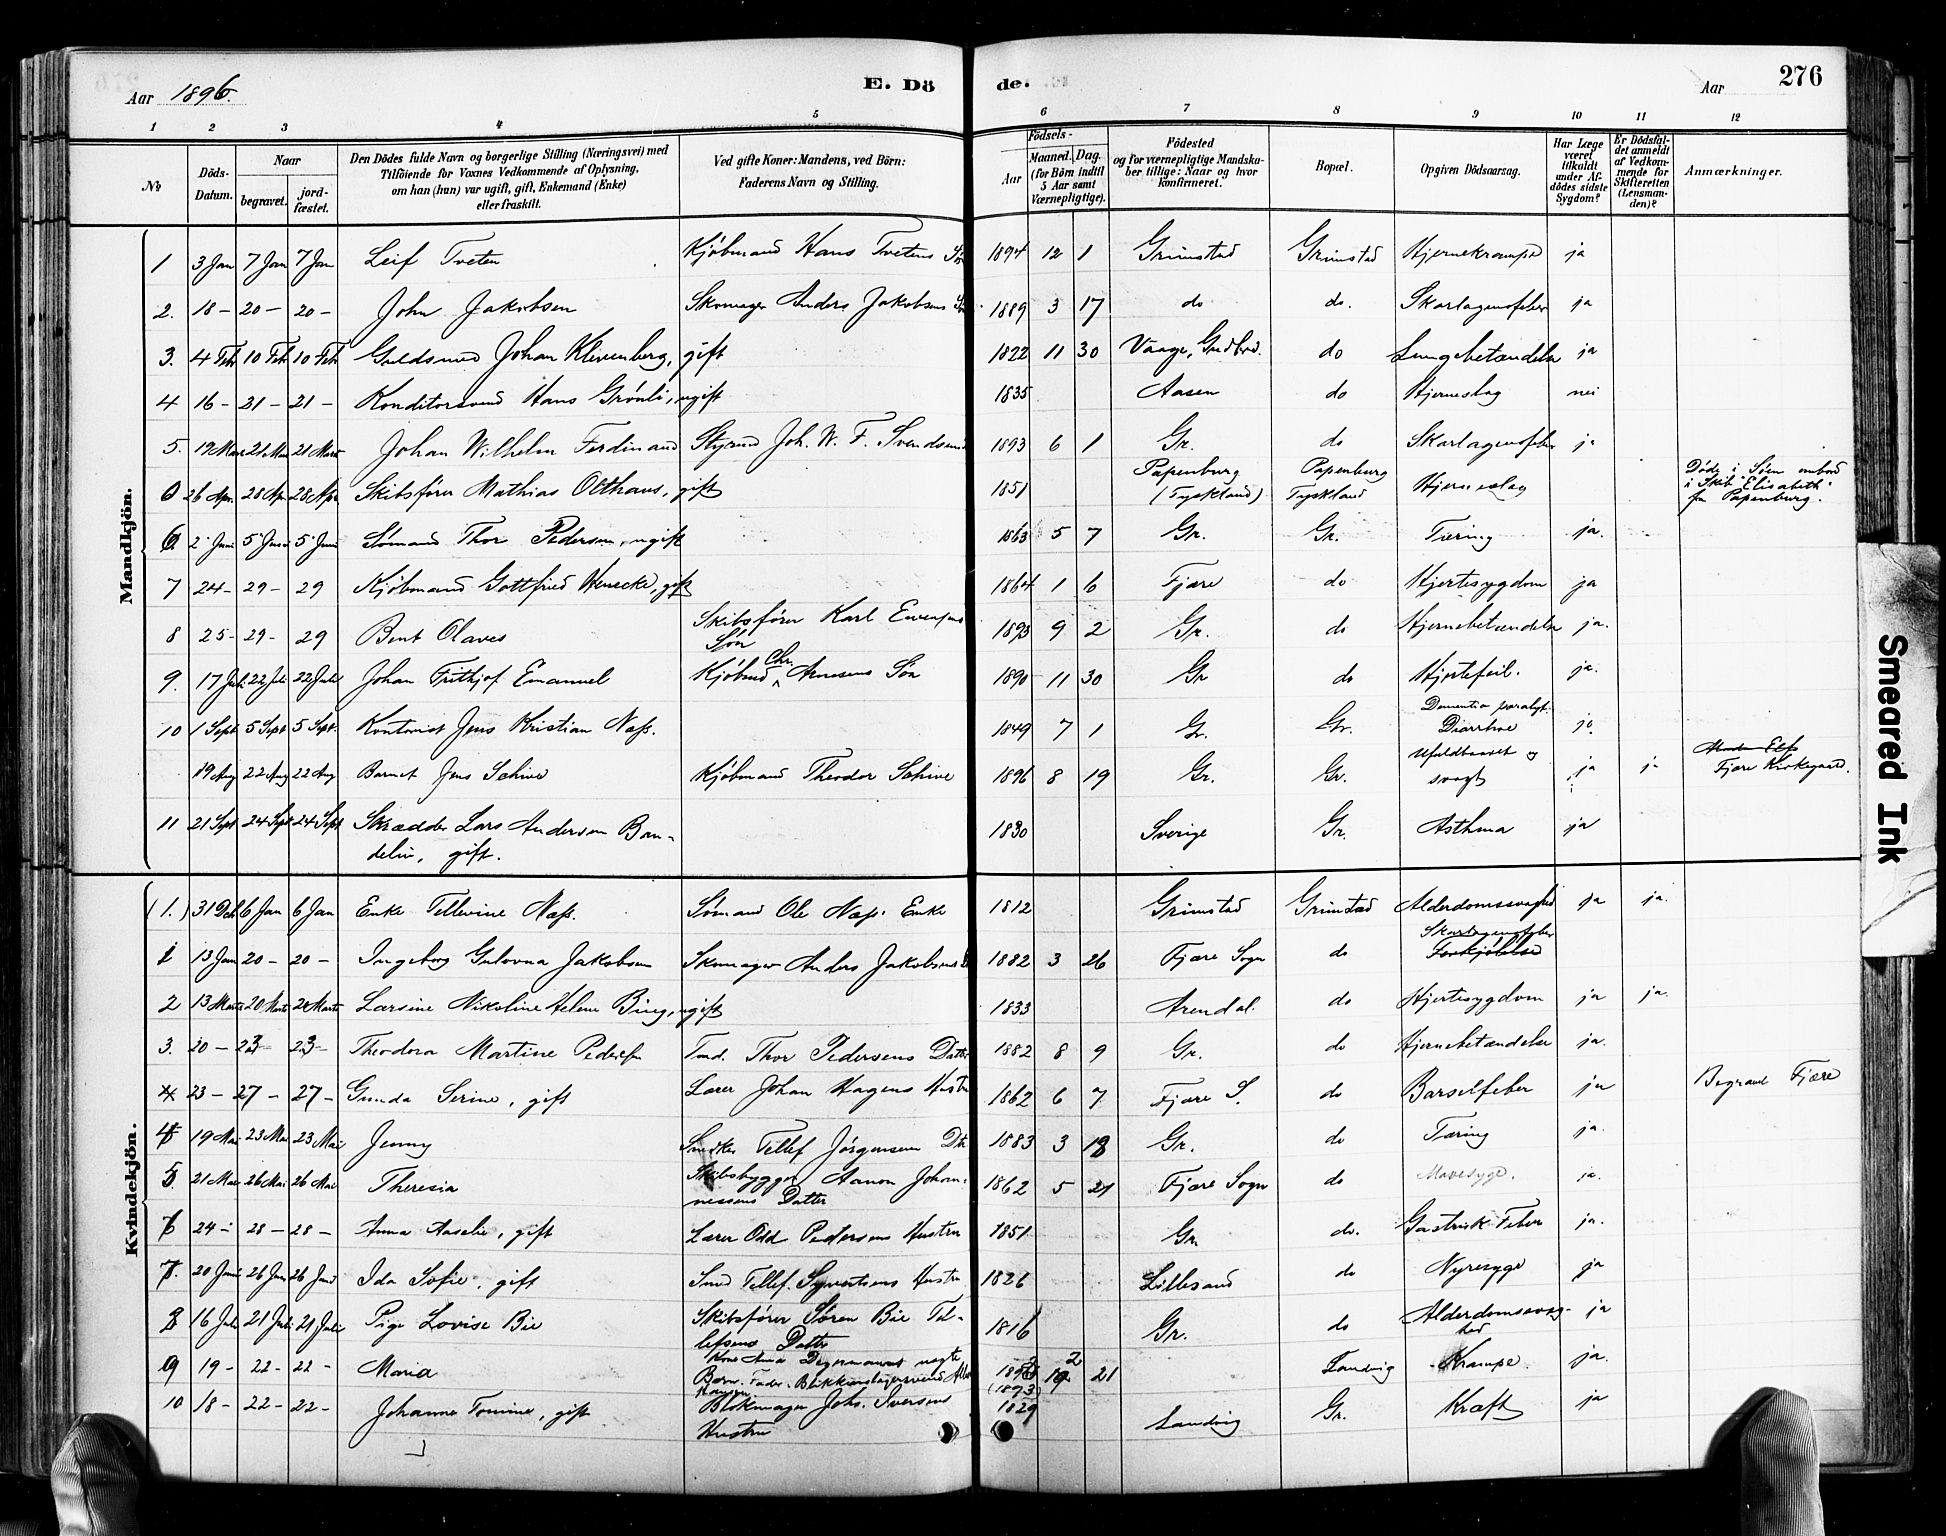 Aar 1896.
E. Dö
de.
Aar
276
1 2 3 4 5 6 7 8 9 10 11 12
No
Döds-Datum.
Naar
begravet.
jordfæstet.
Den Dödes fulde Navn og borgerlige Stilling (Næringsvei) med
Tilföiende for Voxnes Vedkommende af Oplysning,
om han (hun) var ugift, gift, Enkemand (Enke)
eller fraskilt.
Ved gifte Koner: Mandens, ved Börn:
Faderens Navn og Stilling.
Födsels-
Aar
Maaned. Dag.
(for Börn indtil
5 Aar samt
Værnepligtige).
Födested
og for værnepligtige Mandska-
ber tillige: Naar og hvor
konfirmeret.
Bopæl.
Opgiven Dödsaarsag.
Har Læge
været
tilkaldt
under Af-
dödes sidste
Sygdom?
Er Dödsfal-
det anmeldt
af Vedkom-
mende for
Skifteretten
(Lensman-
den)?
Anmærkninger.
Mandkjön.
1 3 Jan 7 Jan 7 Jan Leif Tveten Kjøbmand Hans Tvetens Søn 1894 12 1 Grimstad Grimstad Hjernekrampe ja
2. 18 - 20 - 20 - John Jakobsen Skomager Anders Jakobsens Søn 1889 3 17 do do. Skarlagensfeber ja
3. 4 Feb 10 Feb 10 Feb Guldsmed Johan Klevenberg, gift 1822 11 30 Vaage, Gudbrd. do Lungebetændelse ja
4 16 - 21 - 21 - Konditorsvend Hans Grønli, ugift 1835 Aasen do Hjerneslag nei
5. 19 Mars 21 Mars 21 Mars Johan Wilhelm Ferdinand Styrmd Joh. W. F. Svendsens 1893 6 1 Gr. do Skarlagensfeber ja
0 26 Apr. 28 Apr 28 Apr Skibsfører Mathias Olthaus, gift 1851 Papenburg (Tyskland) Papenburg Tyskland Hjerneslag
Døde i Søen ombord
i Skib "Elisabeth"
fra Papenburg.
6. 2 Juni 5 Juni 5 Juni Sømand Thor Pedersen, ugift 1863 5 7 Gr. Gr. Tæring ja.
7 24 - 29 - 29 Kjøbmand Gottfried Henecke, gift 1864 1 6 Fjære do Hjertesygdom ja
8 25 - 29 - 29 Bent Olaves Skibsfører Karl Evensens Søn 1893 9 2 Gr. do Hjernebetændelse ja.
9. 17 Juli 22 Juli 22 Juli Johan Frithjof Emanuel Kjøbmd Chr. Arnesens Søn 1890 11 30 Gr do Hjertefeil. ja.
10 1 Sept 5 Sept 5 Sept. Kontorist Jens Kristian Næss. 1849 7 1 Gr. Gr. Dementia paralyt. Diarrhoe ja
19 Aug 22 Aug 22 Aug Barnet Jens Schive Kjøbmand Theodor Schive 1896 8 19 Gr. Gr. Ufuldbaaret og svagt ja ja
Fjære Kirkegaard.
11 21 Sept 24 Sept 24 Sept Skrædder Lars Andersen Ban-
delin, gift. 1830 Sverige Gr. Asthma ja
Kvindekjön.
(1.) 31 Dcb 6 Jan 6 Jan Enke Tellevine Næss. Sømand Ole Næss' Enke 1812 Grimstad Grimstad Alderdomssvaghed ja ja.
1 13 Jan 20 - 20 - Ingeborg Gulovna Jakobsen Skomager Anders Jakobsens D 1882 3 26 Fjære Sogn do Skarlagensfeber Forkjølelse
2 13 Marts 20 Marts 20 Marts Larsine Nikoline Helene Bing, ugift 1833 Arendal. do Hjertesygdom ja ja.
3. 20 - 23 23 - Theodora Martine Pedersen Tmd. Thor Pedersens Datter 1882 8 9 Gr. do Hjernebetændelse ja.
4 23 - 27 - 27 - Gunda Serine, gift Lærer Johan Hagens Hustru 1862 6 7 Fjære S. do Barselfeber ja Begravet Fjære
4 19 Mai 23 Mai 23 Mai Jenny Snedker Tellef Jørgensens Dtr 1883 3 18 Gr. do Tæring ja.
5. 21 Mai 26 Mai 26 Mai Theresia Skibsbygger Aanon Johan-
nessens Datter 1862 5 21 Fjære Sogn do Mavesyge. ja.
6 24 - 28 - 28 - Anna Aaselie, gift Lærer Odd Pedersens Hustru 1851 Gr. do. Gastrisk Feber ja.
7. 20 Juni 26 Juni 26 Juni Ida Sofie, gift Smd Tellef Syvertsens Hustru 1826 Lillesand do Nyresyge ja
8 16 Juli 21 Juli 21 Juli Pige Lovise Bie Skibsfører Søren Bie Tel-
lefsens Datter 1816 Gr. do Alderdomssvag-
hed ja
9 19 - 22 - 22 - Maria Kone Anna Degermanns uægte
Barn. Fader: Blikkenslagersvend
Hansen (1893) 2 21 Landvig Krampe. ja.
10 18 - 22 - 22 - Johanne Tomine, gift Blokmager Johs. Iversens
Hustru 1829 Landvig Gr. Kræft ja
Smeared Ink